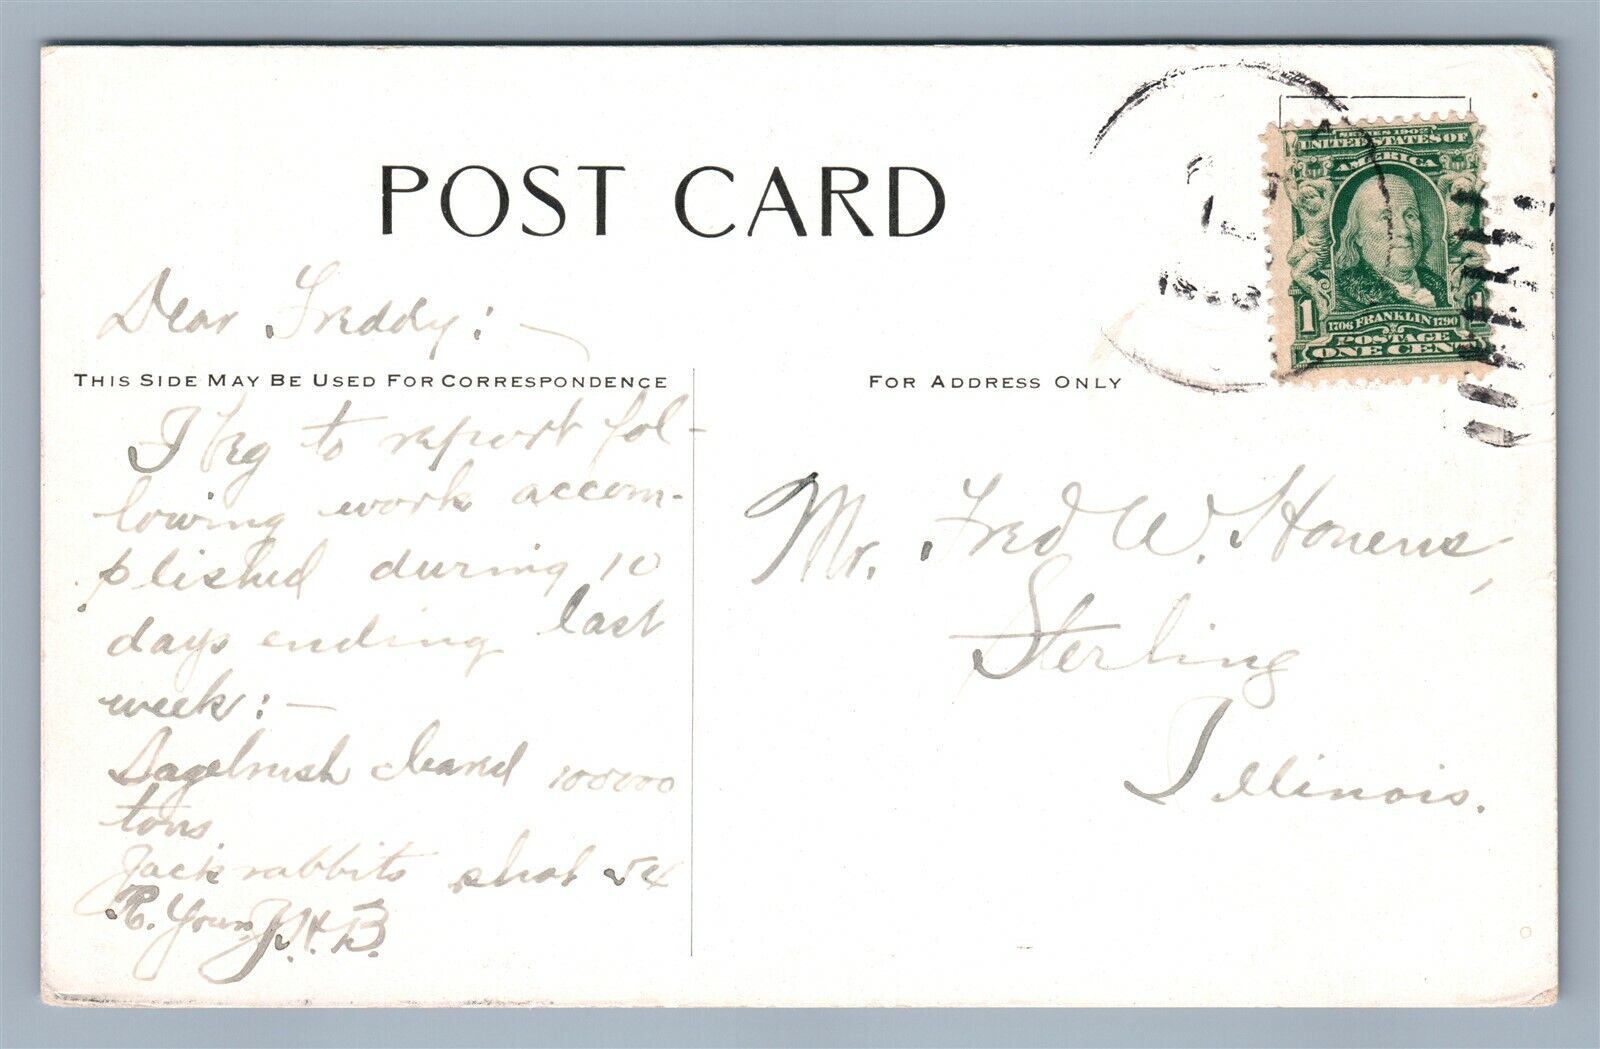 POST CARD
SERIES 1902
UNITED STATES OF
AMERICA
1
1706 FRANKLIN 1790
POSTAGE
ONE CENT
Dear Freddy: —
THIS SIDE MAY BE USED FOR CORRESPONDENCE
I beg to report fol-
lowing work accom-
plished during 10
days ending last
week: —
Sagebrush cleared 100000
tons
Jack rabbits shot 54
R. Yours J. H. B.
FOR ADDRESS ONLY
Mr. Fred W. Honens,
Sterling
Illinois.